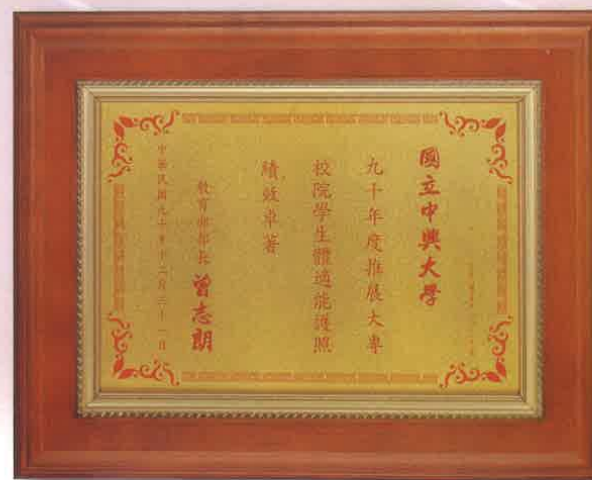 國立中興大學
九十年度推展大專
校院學生體適能護照
績效卓著
教育部部長 曾志朗
中華民國九十年十二月三十一日